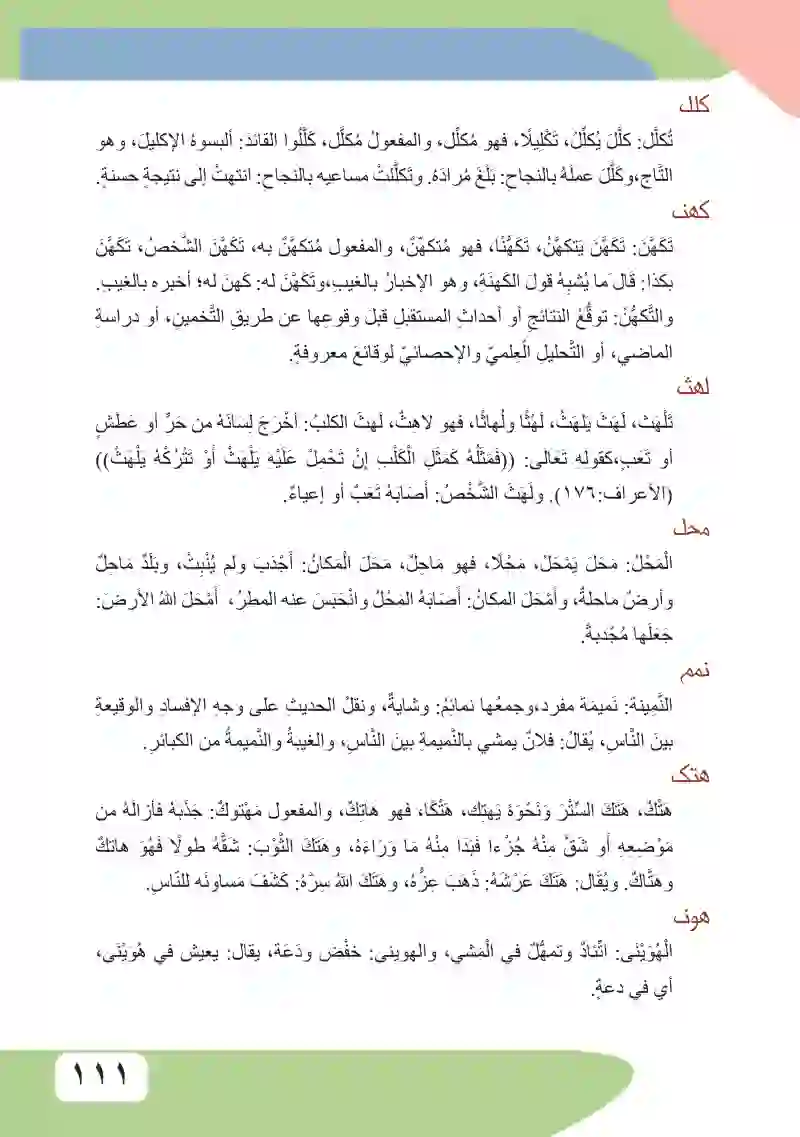 كلل
تُكلَّل: كلَّلَ يُكلِّلُ، تَكْلِيلًا، فهو مُكلِّل، والمفعولُ مُكلَّل، كَلَّلُوا القائدَ: ألبسوهُ الإكليلَ، وهو
التَّاج،وكَلَّلَ عملَهُ بالنجاحِ: بَلَغَ مُرادَهُ. وتَكلَّلتْ مساعيه بالنجاح: انتهتْ إلى نتيجةٍ حسنةٍ.
كهن
تَكَهَّنَ: تَكَهَّنَ يَتكهَّنُ، تَكَهُّنًا، فهو مُتكهِّنٌ، والمفعول مُتكهَّنٌ به، تَكَهَّنَ الشَّخصُ، تَكَهَّنَ
بكذا: قَالَ َما يُشبِهُ قولَ الكَهنَةِ، وهو الإخبارُ بالغيبِ،وتَكَهَّنَ له: كَهنَ له؛ أخبره بالغيبِ.
والتَّكهُّنُ: توقُّعُ النتائجِ أو أحداثِ المستقبلِ قبلَ وقوعِها عن طريقِ التَّخمينِ، أو دراسةِ
الماضي، أو التَّحليلِ الْعِلميّ والإحصائيّ لوقائعَ معروفةٍ.
لهث
تَلْهَث، لَهَثَ يَلهَثُ، لَهْثًا ولُهاثًا، فهو لاهِثٌ، لَهثَ الكلبُ: أخْرَجَ لِسَانَهُ من حَرٍّ أو عَطَشٍ
أو تَعَبٍ،كقولهِ تَعَالى: ((فَمَثَلُهُ كَمَثَلِ الْكَلْبِ إِنْ تَحْمِلْ عَلَيْهِ يَلْهَثْ أَوْ تَتْرُكْهُ يَلْهَثْ))
(الأعراف:١٧٦). ولَهَثَ الشَّخْصُ: أصَابَهُ تَعَبٌ أو إعياءٌ.
محل
الْمَحْلُ: مَحَلَ يَمْحَلُ، مَحْلًا، فهو مَاحِلٌ، مَحَلَ الْمكانُ: أَجْدَبَ ولم يُنْبِتْ، وبَلَدٌ مَاحِلٌ
وأرضٌ ماحلةٌ، وأمْحَلَ المكانُ: أصَابَهُ المَحْلُ وانْحَبَسَ عنه المطرُ، أمْحَلَ اللهُ الأرضَ:
جَعَلَها مُجْدبةً.
نمم
النَّمِينة: نَميمَة مفرد،وجمعُها نمائِمُ: وشايةٌ، ونقلُ الحديثِ على وجهِ الإفسادِ والوقيعةِ
بينَ النَّاسِ، يُقالُ: فلانٌ يمشي بالنَّميمةِ بينَ النَّاسِ، والغيبةُ والنَّميمةُ من الكبائرِ.
هتك
هَتْكٌ، هَتَكَ السِّتْرَ وَنَحْوَهُ يَهتِك، هَتْكًا، فهو هاتِكٌ، والمفعول مَهْتوكٌ: جَذَبهُ فأزالَهُ من
مَوْضِعِهِ أَو شَقَّ مِنْهُ جُزْءا فَبَدَا مِنْهُ مَا وَرَاءَهُ، وهَتَكَ الثَّوْبَ: شَقَّهُ طولًا فَهُوَ هاتكٌ
وهتَّاكٌ. ويُقَال: هَتَكَ عَرْشَهُ: ذَهَبَ عِزُّهُ، وهَتَكَ اللهُ سِرَّهُ: كَشَفَ مَساوئَه للنَّاسِ.
هون
الْهُوَيْنَى: اتِّئادٌ وتمهُّلٌ في الْمَشي، والهوينى: خَفْضَ ودَعَة، يقال: يعيش في هُوَيْنَى،
أي في دعةٍ.
١١١